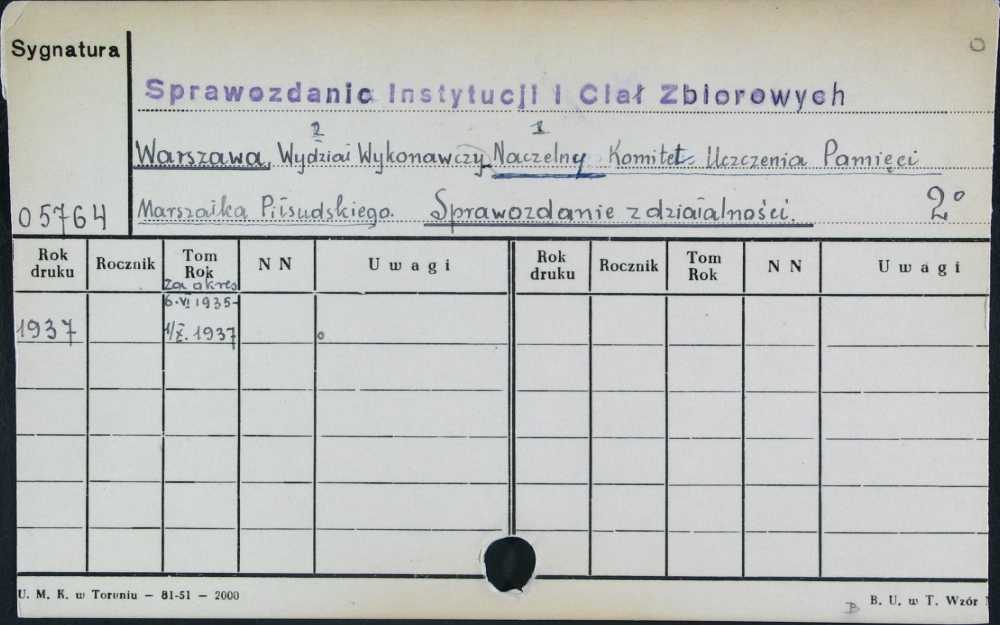 Sygnatura
Sprawozdanie Instytucji i Ciał Zbiorowych
2 1
Warszawa, Wydział Wykonawczy Naczelny Komitet Uczczenia Pamięci
05764 Marszałka Piłsudskiego. Sprawozdanie z działalności. 2°
Rok druku Rocznik Tom Rok NN Uwagi Rok druku Rocznik Tom Rok NN Uwagi
za okres
6.VI 1935-
1937 1/X. 1937
U. M. K. w Toruniu — 81-51 — 2000
B. U. w T. Wzór